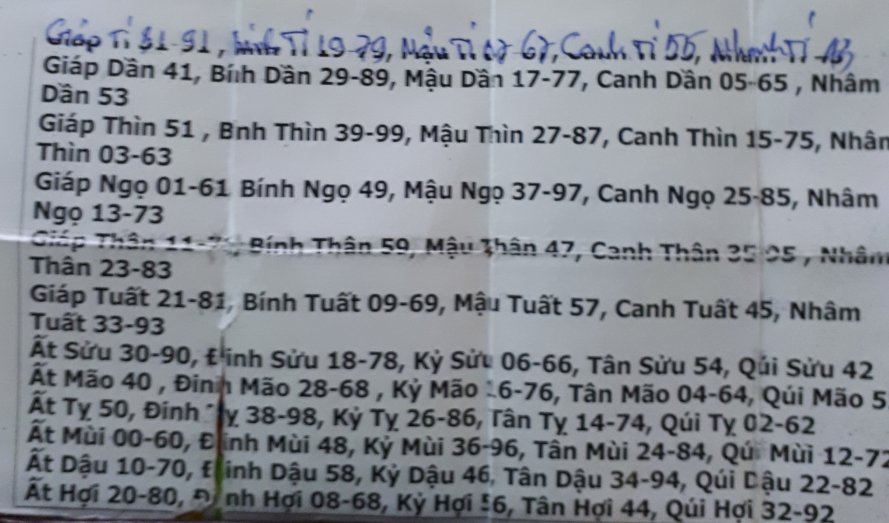 Giáp Tí 31-91, Bính Tí 19-79, Mậu Tí 07-67, Canh Tí 55, Nhâm Tí 43
Giáp Dần 41, Bính Dần 29-89, Mậu Dần 17-77, Canh Dần 05-65 , Nhâm
Dần 53
Giáp Thìn 51 , Bnh Thìn 39-99, Mậu Thìn 27-87, Canh Thìn 15-75, Nhân
Thìn 03-63
Giáp Ngọ 01-61 Bính Ngọ 49, Mậu Ngọ 37-97, Canh Ngọ 25-85, Nhâm
Ngọ 13-73
Giáp Thân Bính Thân 59, Mậu Thân 47, Canh Thân , Nhâm
Thân 23-83
Giáp Tuất 21-81, Bính Tuất 09-69, Mậu Tuất 57, Canh Tuất 45, Nhâm
Tuất 33-93
Ất Sửu 30-90, Đinh Sửu 18-78, Kỷ Sửu 06-66, Tân Sửu 54, Qúi Sửu 42
Ất Mão 40 , Đinh Mão 28-68 , Kỷ Mão 16-76, Tân Mão 04-64, Qúi Mão 5
Ất Tỵ 50, Đinh Tỵ 38-98, Kỷ Tỵ 26-86, Tân Tỵ 14-74, Qúi Tỵ 02-62
Ất Mùi 00-60, Đinh Mùi 48, Kỷ Mùi 36-96, Tân Mùi 24-84, Qúi Mùi 12-72
Ất Dậu 10-70, Đinh Dậu 58, Kỷ Dậu 46, Tân Dậu 34-94, Qúi Dậu 22-82
Ất Hợi 20-80, Đinh Hợi 08-68, Kỷ Hợi 56, Tân Hợi 44, Qúi Hợi 32-92